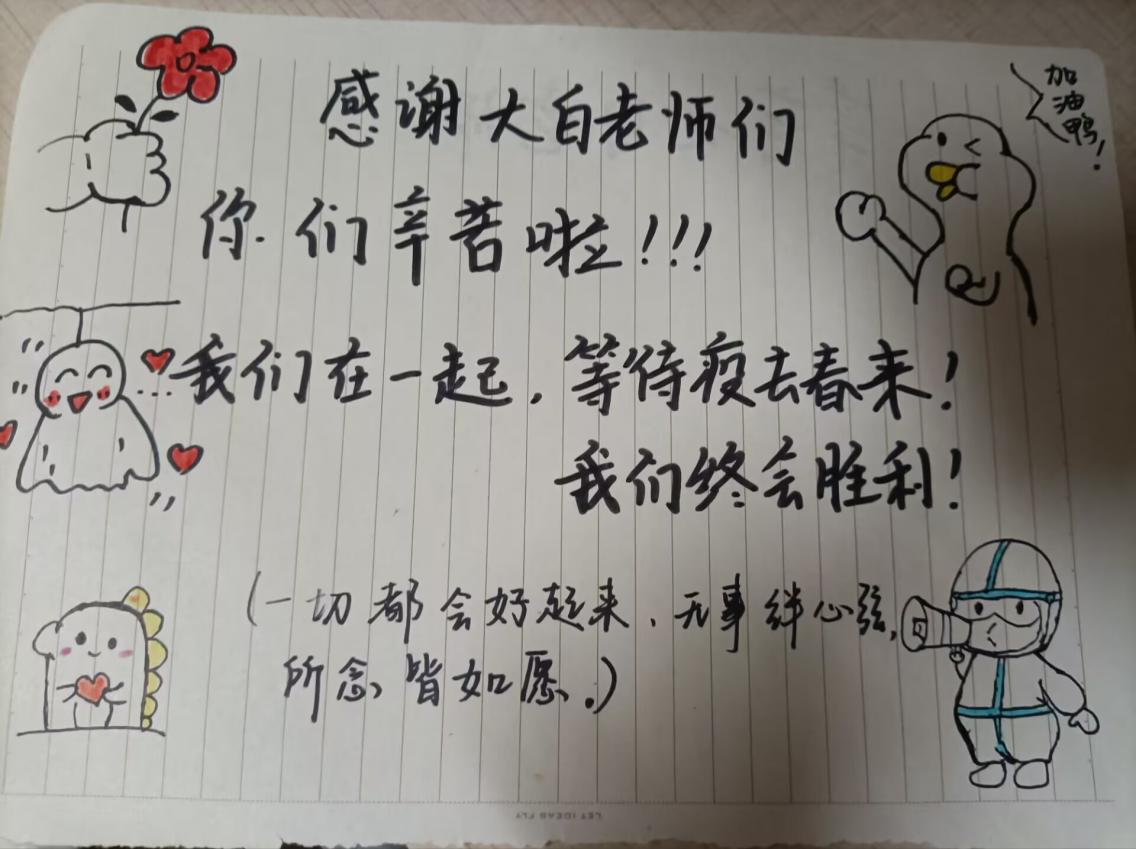 感谢大白老师们
加油鸭！
你们辛苦啦！！！
我们在一起，等待疫去春来！
我们终会胜利！
（一切都会好起来、无事绊心弦，
所念皆如愿。）
LET IDEAS FLY